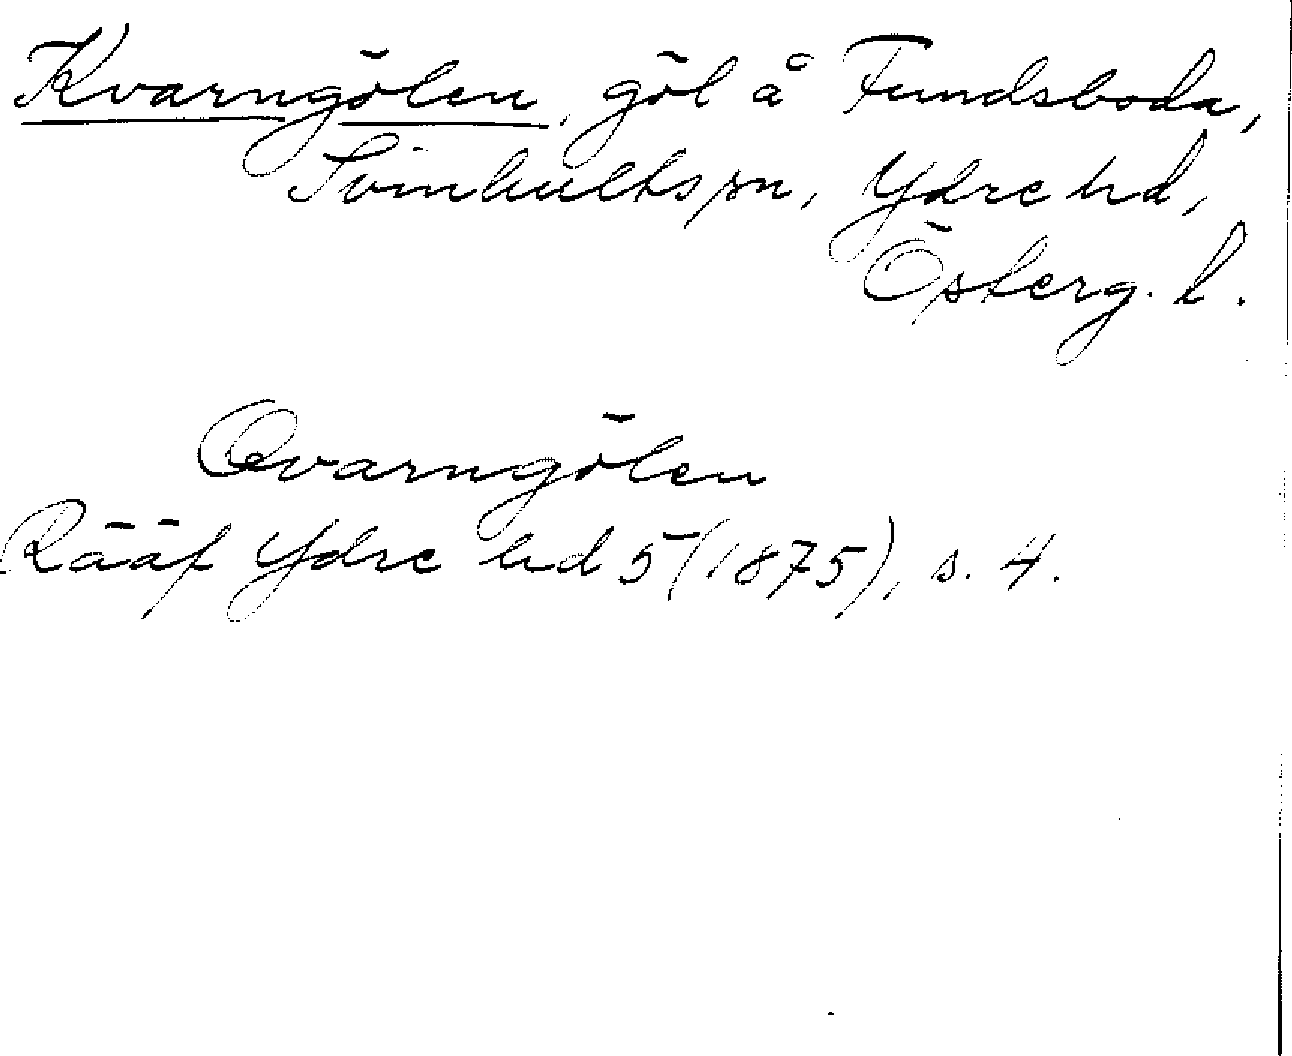 Kvarngölen, göl å Fundsboda,
Svinhults sn, Ydre hd,
Österg. l.
Qvarngölen
Rääf Ydre hd 5 (1875), s. 4.